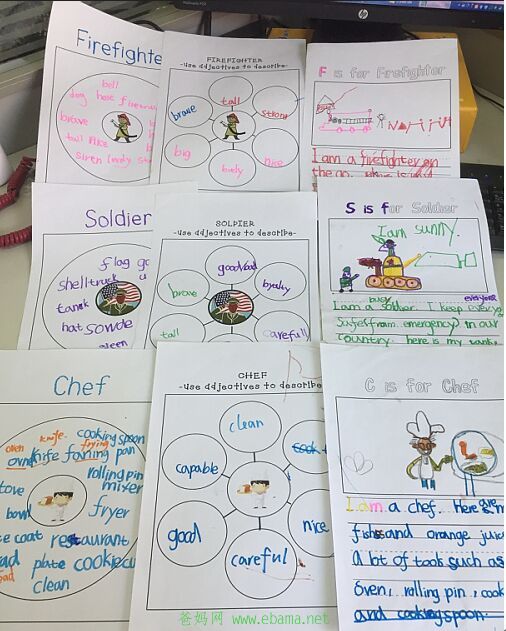 hp
Firefighter
bell
dog hose fire
brave
tall nice
siren
FIREFIGHTER
-use adjectives to describe-
tall
brave
strong
big
nice
lively
F is for Firefighter
I am a firefighter on
the go.
Soldier
flag
shell truck
tank
hat
SOLDIER
-use adjectives to describe-
good/bad
brave
tall
carefull
S is for Soldier
I am sunny.
busy everyone
I am a soldier. I keep
from emergency in our
country. here is my tank
Chef
oven knife. cooking spoon
frying
knife pan
rolling pin
mixer
bowl fryer
coat restaurant
plate cookie
clean
CHEF
-use adjectives to describe-
clean
capable
cook
good
nice
careful
C is for Chef
I am a chef. Here are
fish and orange juice
a lot of tools such as
oven, rolling pin, cook
and cooking spoon.
爸妈网 www.ebama.net